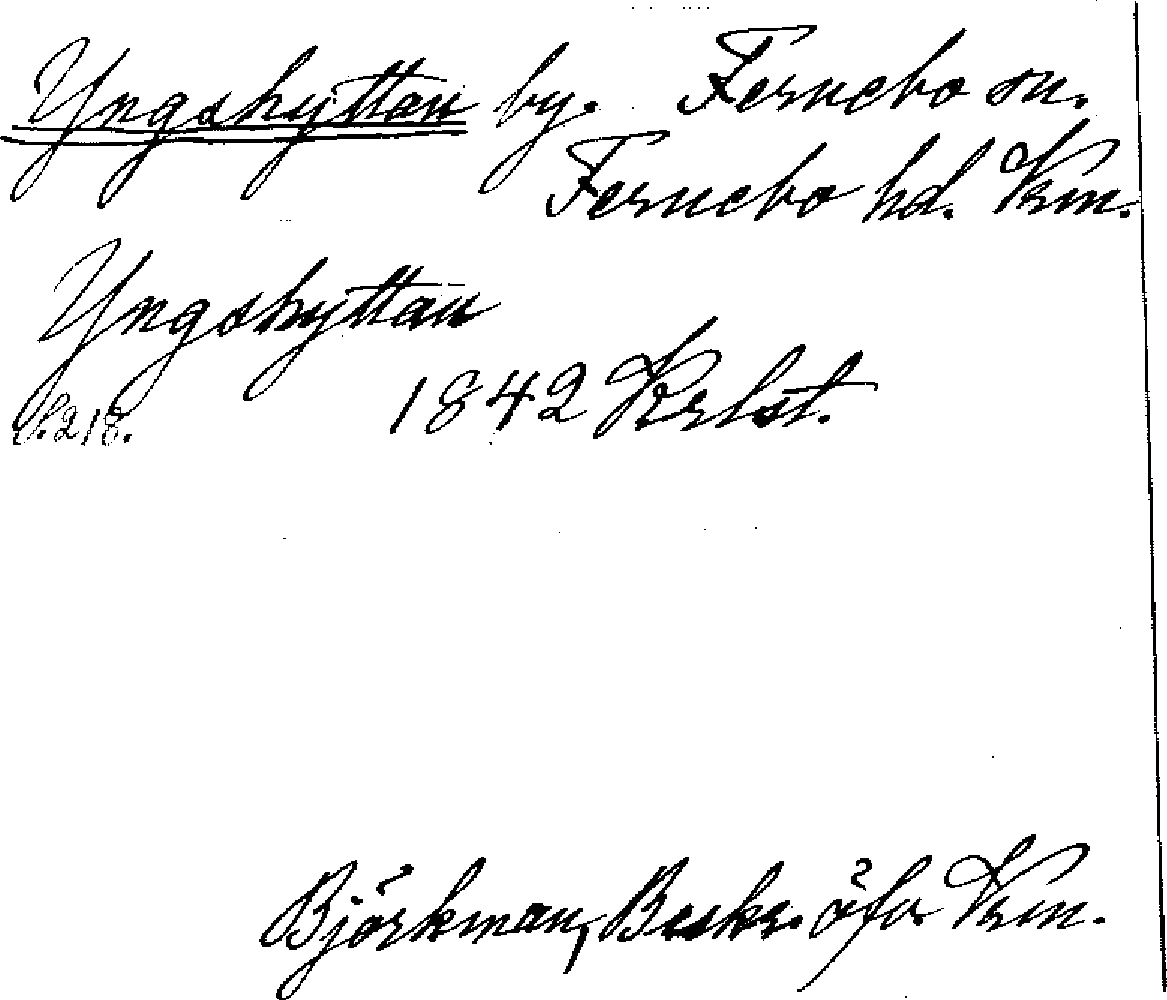 Yngshyttan by. Fernebo sn.
Fernebo hd. Vrm.
Yngshyttan
S. 218. 1842 Krlst.
Björkman, Beskr. öfv. Vrm.